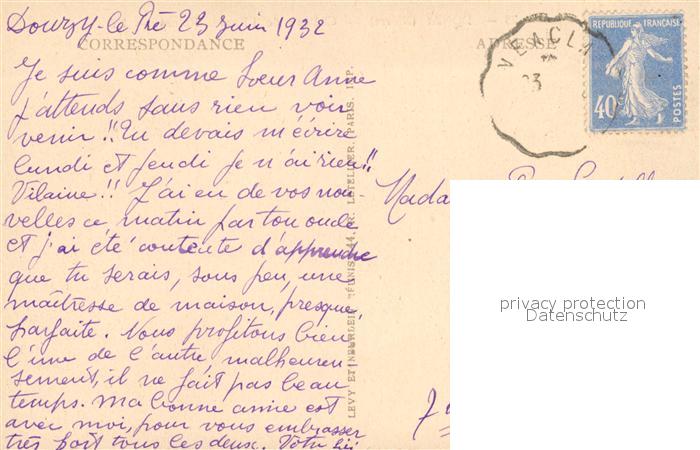 Douzy-le Pré 23 juin 1932
CORRESPONDANCE
ADRESSE
Je suis comme Soeur Anne
j'attends sans rien voir
venir!! Tu devais m'écrire
lundi et jeudi je n'ai rien!!
Vilaine!! J'ai eu de vos nou
velles ce matin par ton oncle
et j'ai été contente d'apprendre
que tu serais, sous peu, une
maîtresse de maison, presque,
parfaite. Nous profitons bien
l'une de l'autre malheureu
sement, il ne fait pas beau
temps. Ma bonne amie est
avec moi, pour vous embrasser
très fort tous les deux. Votre
LEVY ET NEURDEIN RÉUNIS, 44, R. LETELLIER, PARIS. IMP.
REPUBLIQUE FRANÇAISE
POSTES
40c
23
Mada
privacy protection
Datenschutz